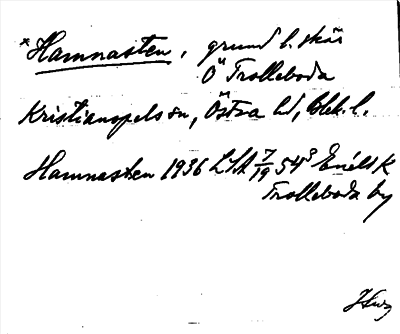 *Hamnasten, grund l. skär
Ö Trolleboda
Kristianopels sn, Östra hd, Blek. l.
Hamnasten 1936 LSA 7/19 54³ Enskk
Trolleboda by